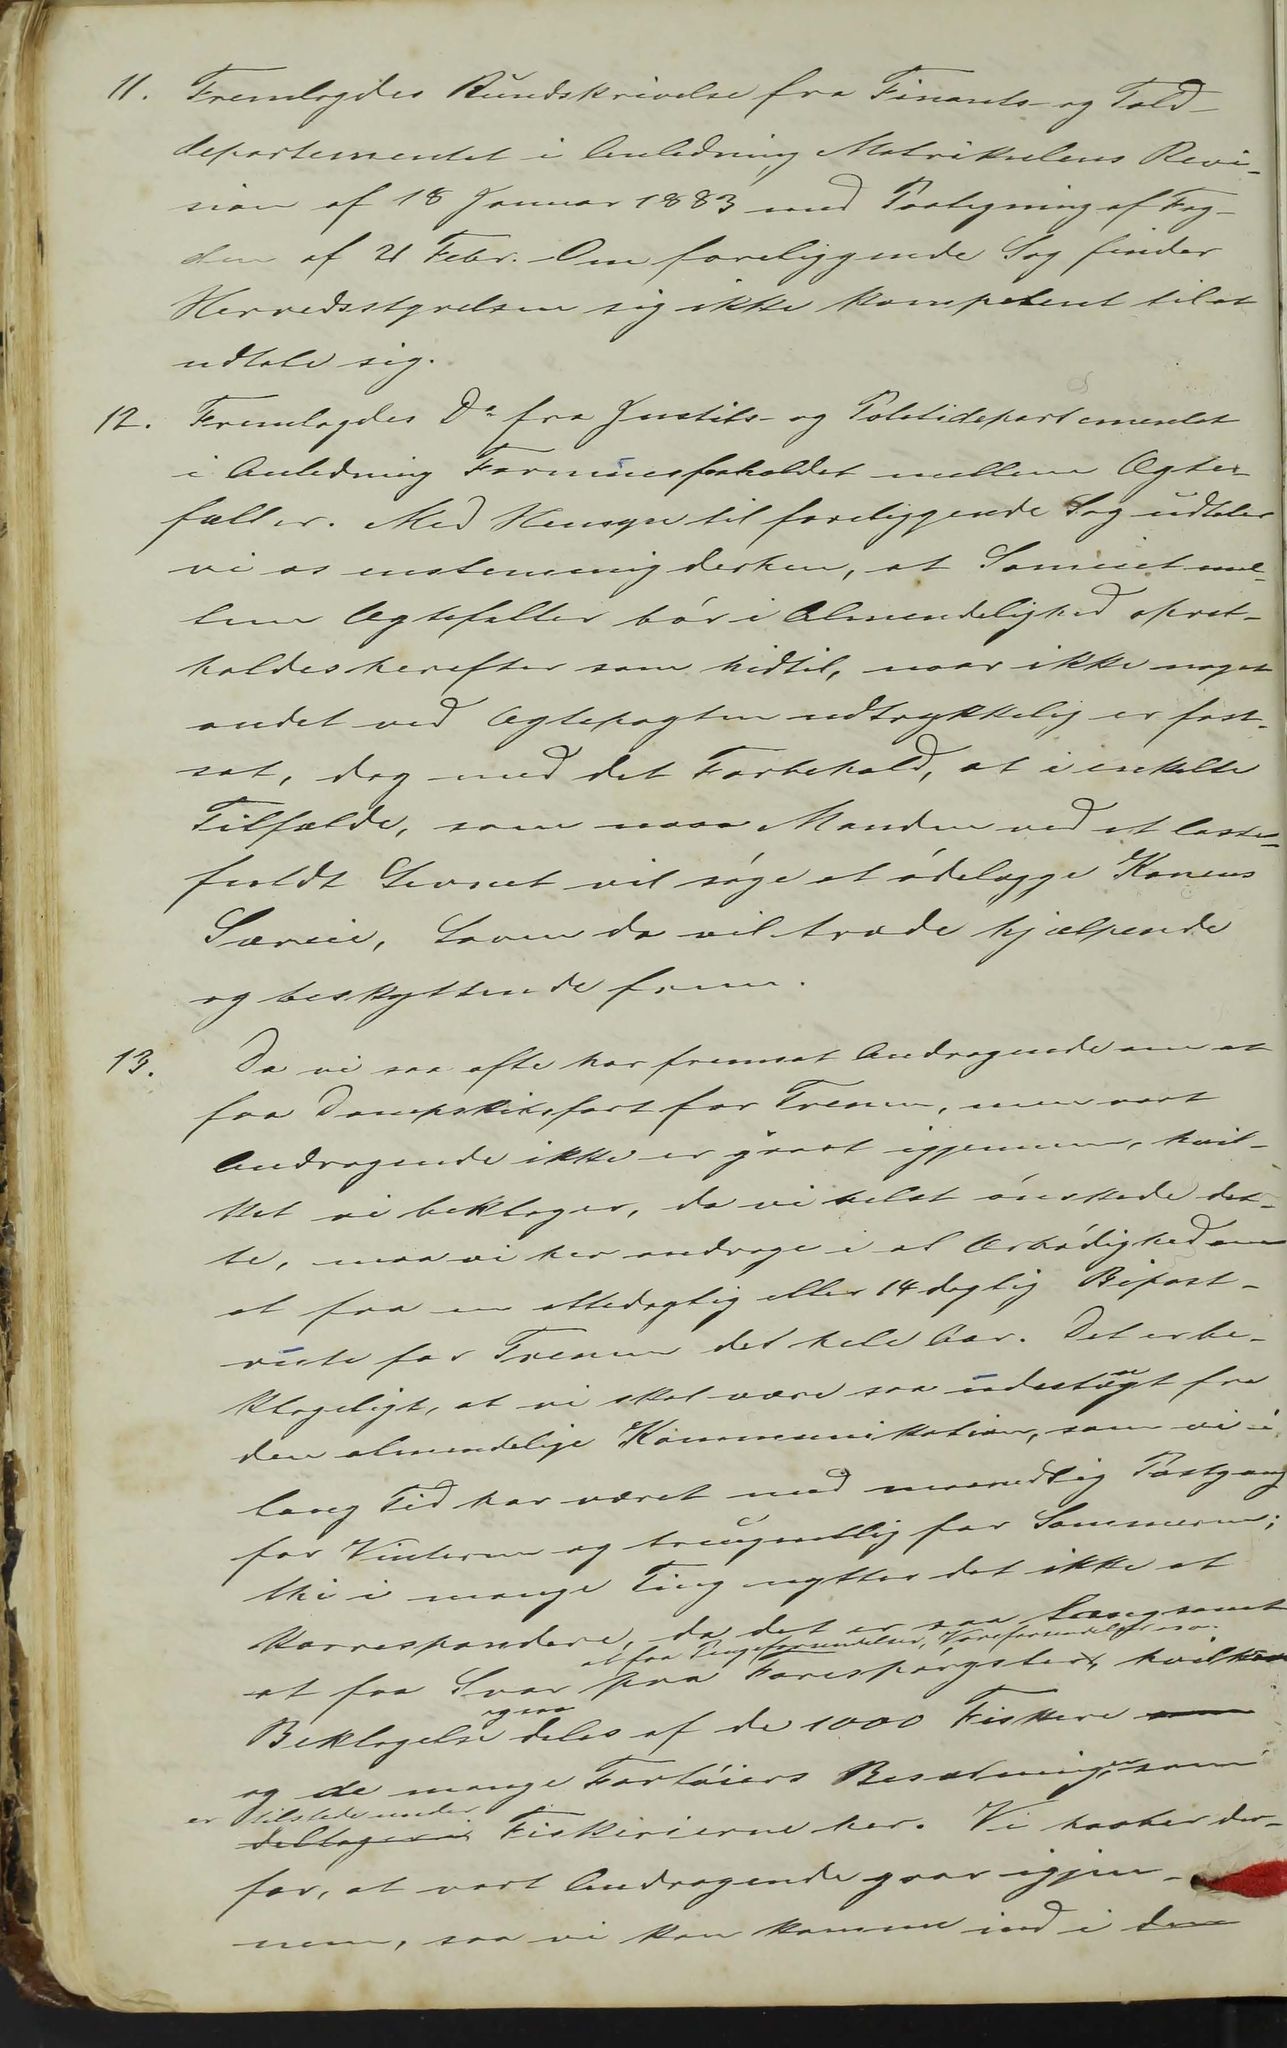 11. Fremlagdes Rundskrivelse fra Finants- og Told-
departementet i Anledning Matrikulens Revi-
sion af 18 Januar 1883 med Paategning af Fog-
den af 21 Febr. Om foreliggende Sag finder
Herredsstyrelsen sig ikke kompetent til at
udtale sig.
12. Fremlagdes Do fra Justits- og Politidepartementet
i Anledning Formuesforholdet mellem Ægte-
fæller. Med Hensyn til foreliggende Sag udtaler
vi os enstemmig derhen, at Sameiet mel-
lem Ægtefæller bør i Almindelighed opret-
holdes herefter som hidtil, naar ikke noget
andet ved Ægtepagten udtrykkelig er fast-
sat, dog med det Forbehold, at i enkelte
Tilfælde, som naar Manden ved et laste-
fuldt Levnet vil søge at ødelægge Konens
Særeie, Loven da vil træde hjælpende
og beskyttende frem.
13. Da vi saa ofte har fremsat Andragende om at
faa Dampskibsfart for Trænen, men vort
Andragende ikke er gaaet igjennem, hvil-
ket vi beklager, da vi helst ønskede det-
te, maa vi her andrage i al Ærbødighed om
at faa en ottedagtig eller 14 dagtig Bipost-
route for Trænen det hele Aar. Det er be-
klageligt, at vi skal være saa udestængt fra
den almindelige Kommunikation, som vi i
lang Tid har været med maanedlig Postgang
for Vinteren og treugentlig for Sommeren;
thi i mange Ting nytter det ikke at
korrespondere, da det er saa langsomt
at faa Pengeforsendelser, Vareforsendelser
at faa Svar paa Forespørgsler, hvilken
ogsaa
Beklagelse deles af de 1000 Fiskere som
og de mange Fartøiers Besætninger som
er tilstede under
deltager i Fiskerierne her. Vi haaber der-
for, at vort Andragende gaar igjen-
nem, saa vi kan komme ind i den